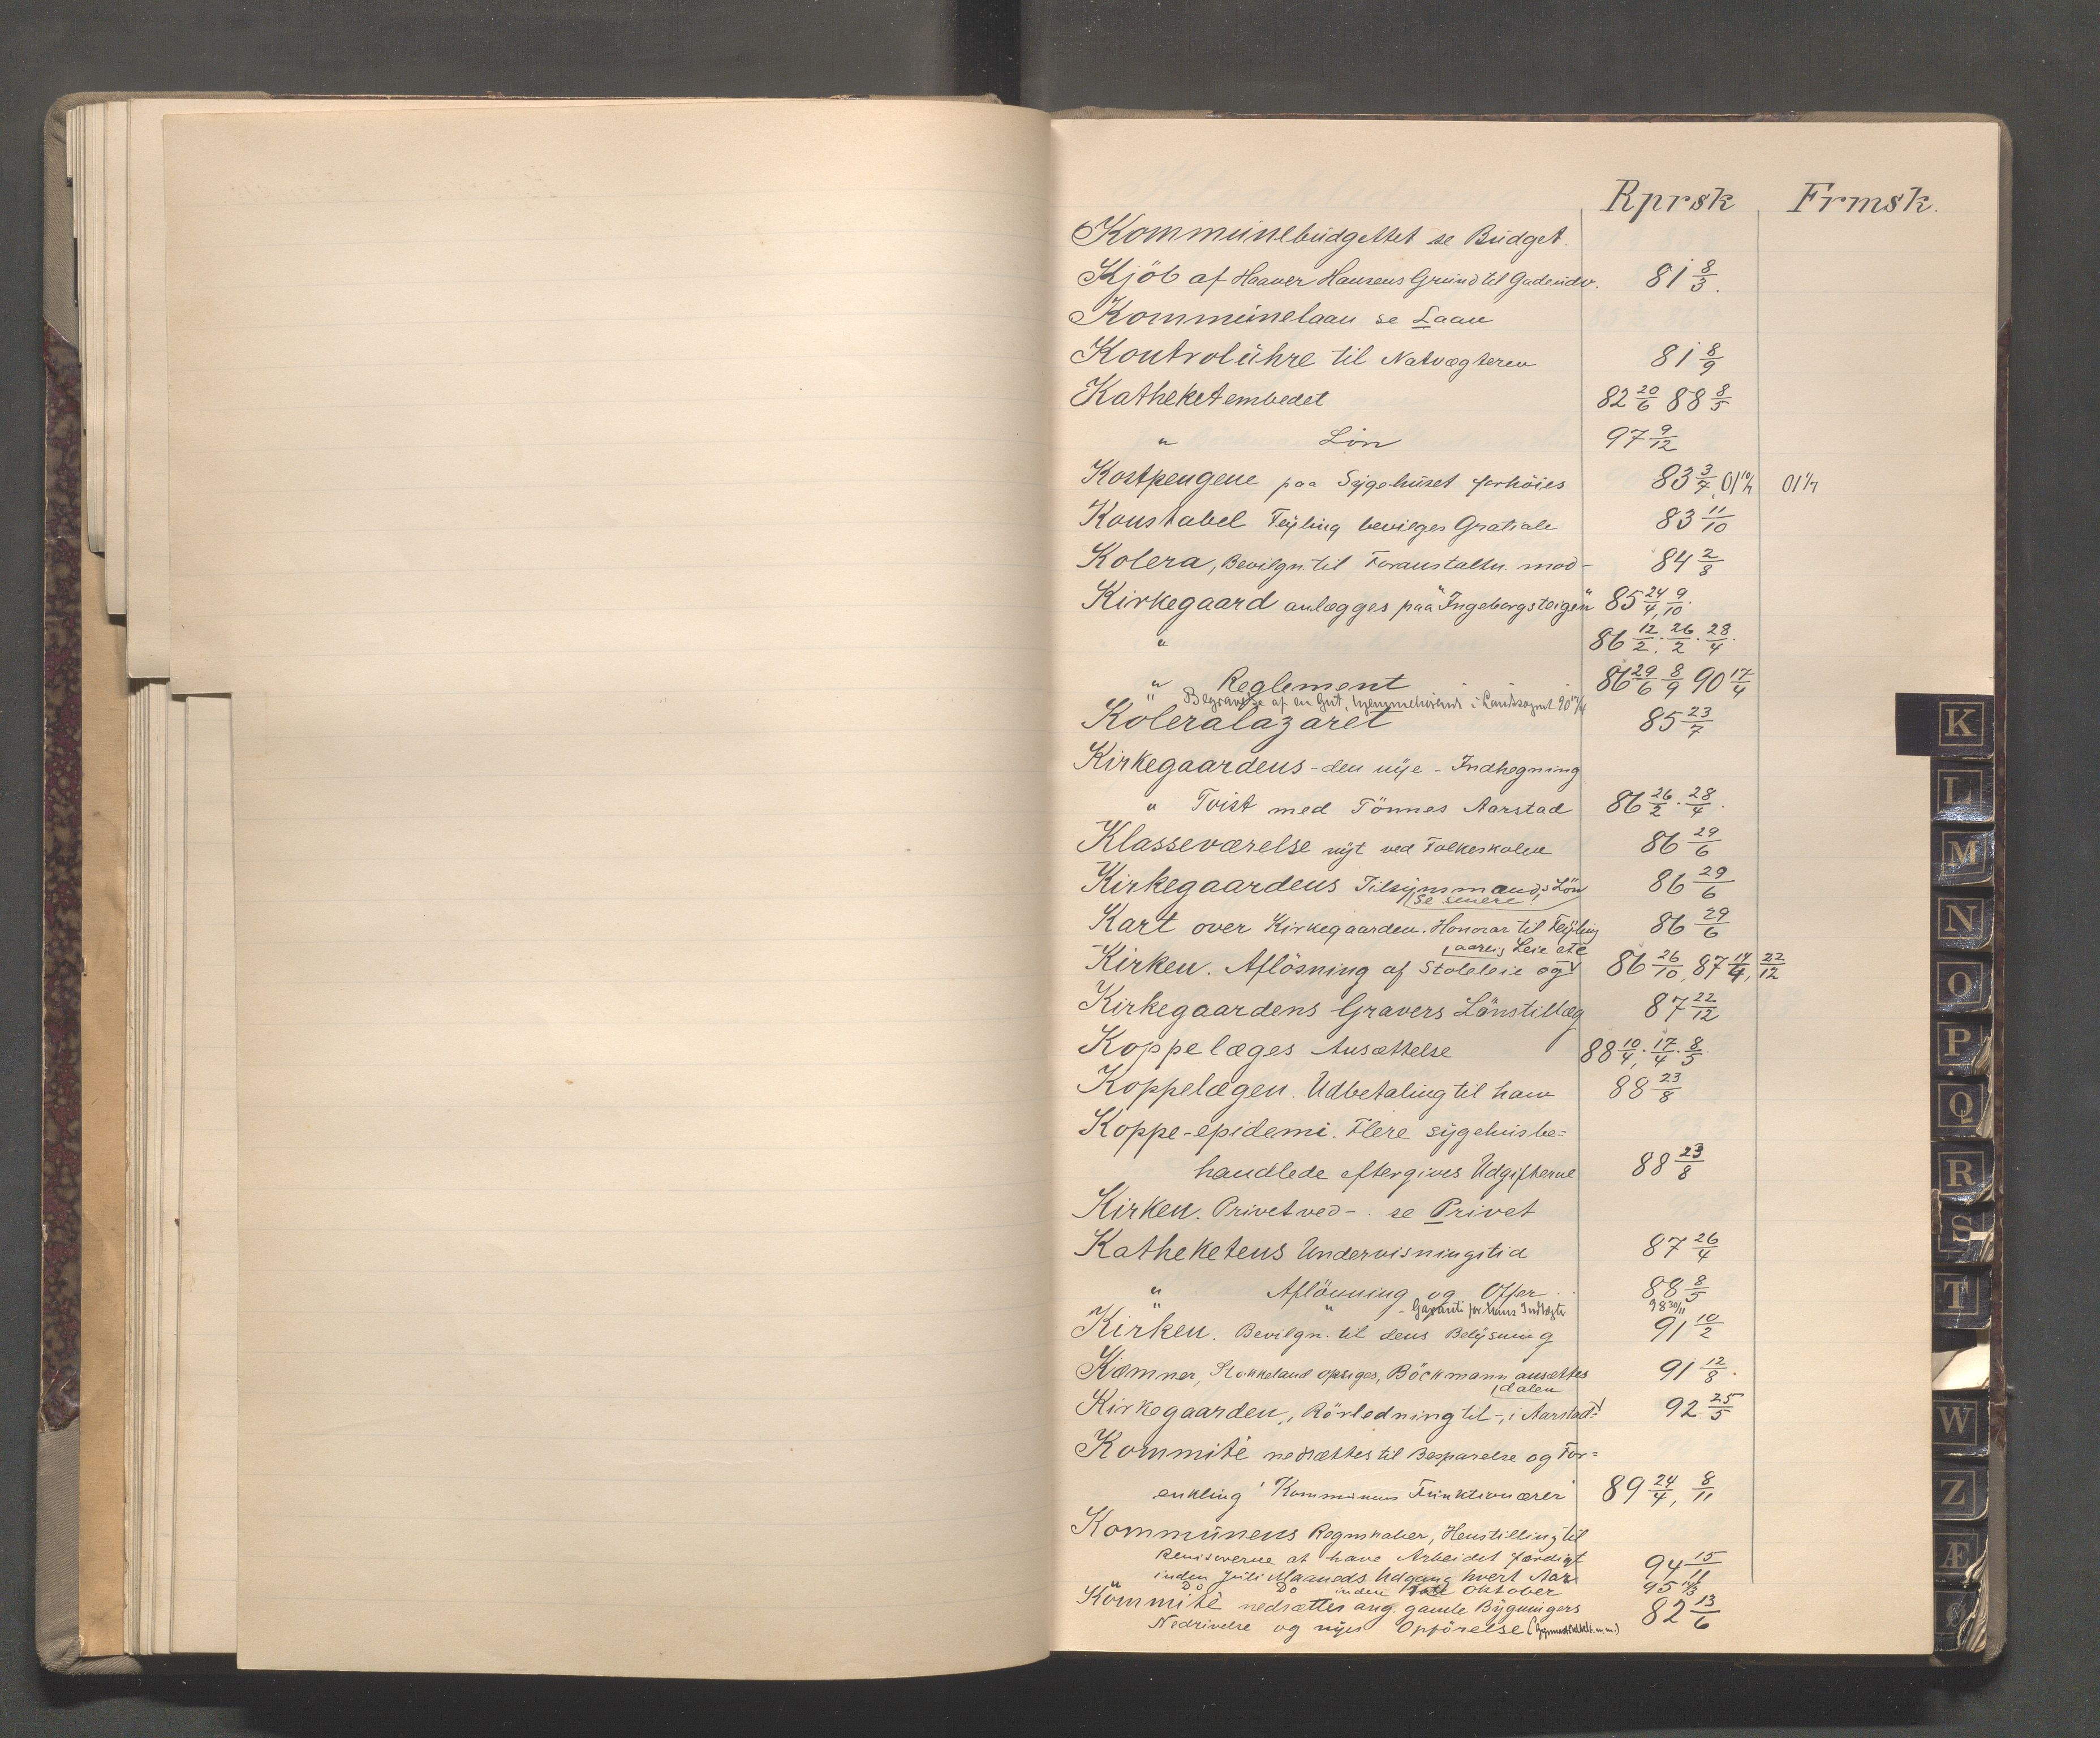 Rprsk Frmsk.
Kommunebudgettet se Budget.
Kjöb af Haaver Hansens Grund til Gadeudv. 81 8/3.
Kommunelaan se Laan
Kontrolühre til Natvægteren 81 8/9
Katheketembedet 82 20/6 88 8/5
" Lön 97 9/12
Kostpengene paa Sygehuset forhöies 83 3/4, 01 10/4 01 1/4
Konstabel Feyling bevilges Gratiale 83 11/10
Kolera, Bevilgn. til Foranstaltn. mod- 84 2/8
Kirkegaard anlægges paa "Ingeborgsteigen" 85 24/4, 9/10.
" 86 12/2. 26/2. 28/4.
" Reglement 86 29/6 8/9 90 17/4
" Begravelse af en Gut, hjemmehörende i Landsognet 90 17/4
Koleralazaret 85 23/7
Kirkegaardens - den nye - Indhegning
" Tvist med Tönnes Aarstad 86 26/2. 28/4.
Klasseværelse nyt ved Folkeskolen 86 29/6
Kirkegaardens Tilsynsmands Lön 86 29/6
se senere
Kart over Kirkegaarden. Honorar til Feyling 86 29/6
aarlig Leie etc
Kirken. Aflösning af Stoleleie og 86 26/10, 87 14/4, 22/12
Kirkegaardens Gravers Lönstillæg 87 22/12
Koppelæges Ansættelse 88 10/4. 17/4. 8/5.
Koppelægen. Udbetaling til ham 88 23/8
Koppe-epidemi. Flere sygehusbe=
handlede eftergives Udgifterne 88 23/8
Kirken. Privet ved - . se Privet
Katheketens Undervisningstid 87 26/4
" Aflönning og Offer 88 8/5
" " - Garanti for hans Indtægter 98 30/11
Kirken. Bevilgn. til dens Belysning 91 10/2
Kæmner, Stokkeland opsiges, Böckmann ansættes 91 12/8.
dalen
Kirkegaarden, Rörledning til -, i Aarstad= 92 25/5
Kommité nedsættes til Besparelse og For=
enkling i Kommunens Funktionærer 89 24/4, 8/11
Kommunens Regnskaber, Henstilling til
Revisorerne at have Arbeidet færdigt
inden Juli Maaneds Udgang hvert Aar 94 15/11
" Do Do inden Oktober 95 14/3
Kommité nedsættes ang. gamle Bygningers 82 13/6
Nedrivelse og nyes Opförelse